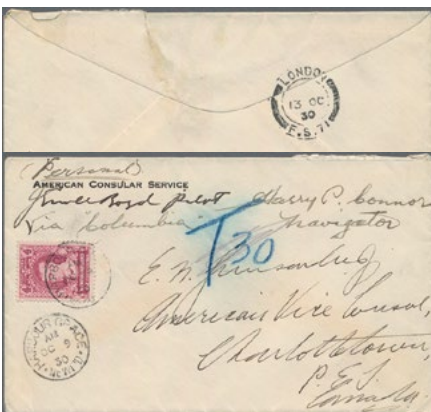 LONDON
13 OC
30
F.S.71
(Personal)
AMERICAN CONSULAR SERVICE
J Errol Boyd Pilot Harry P. Connor
Via "Columbia" Navigator
T30
E. N.
American Vice Consul,
Charlottetown,
P.E.I.
Canada.
HARBOUR GRACE
AM
OC 9
30
NEWF'D